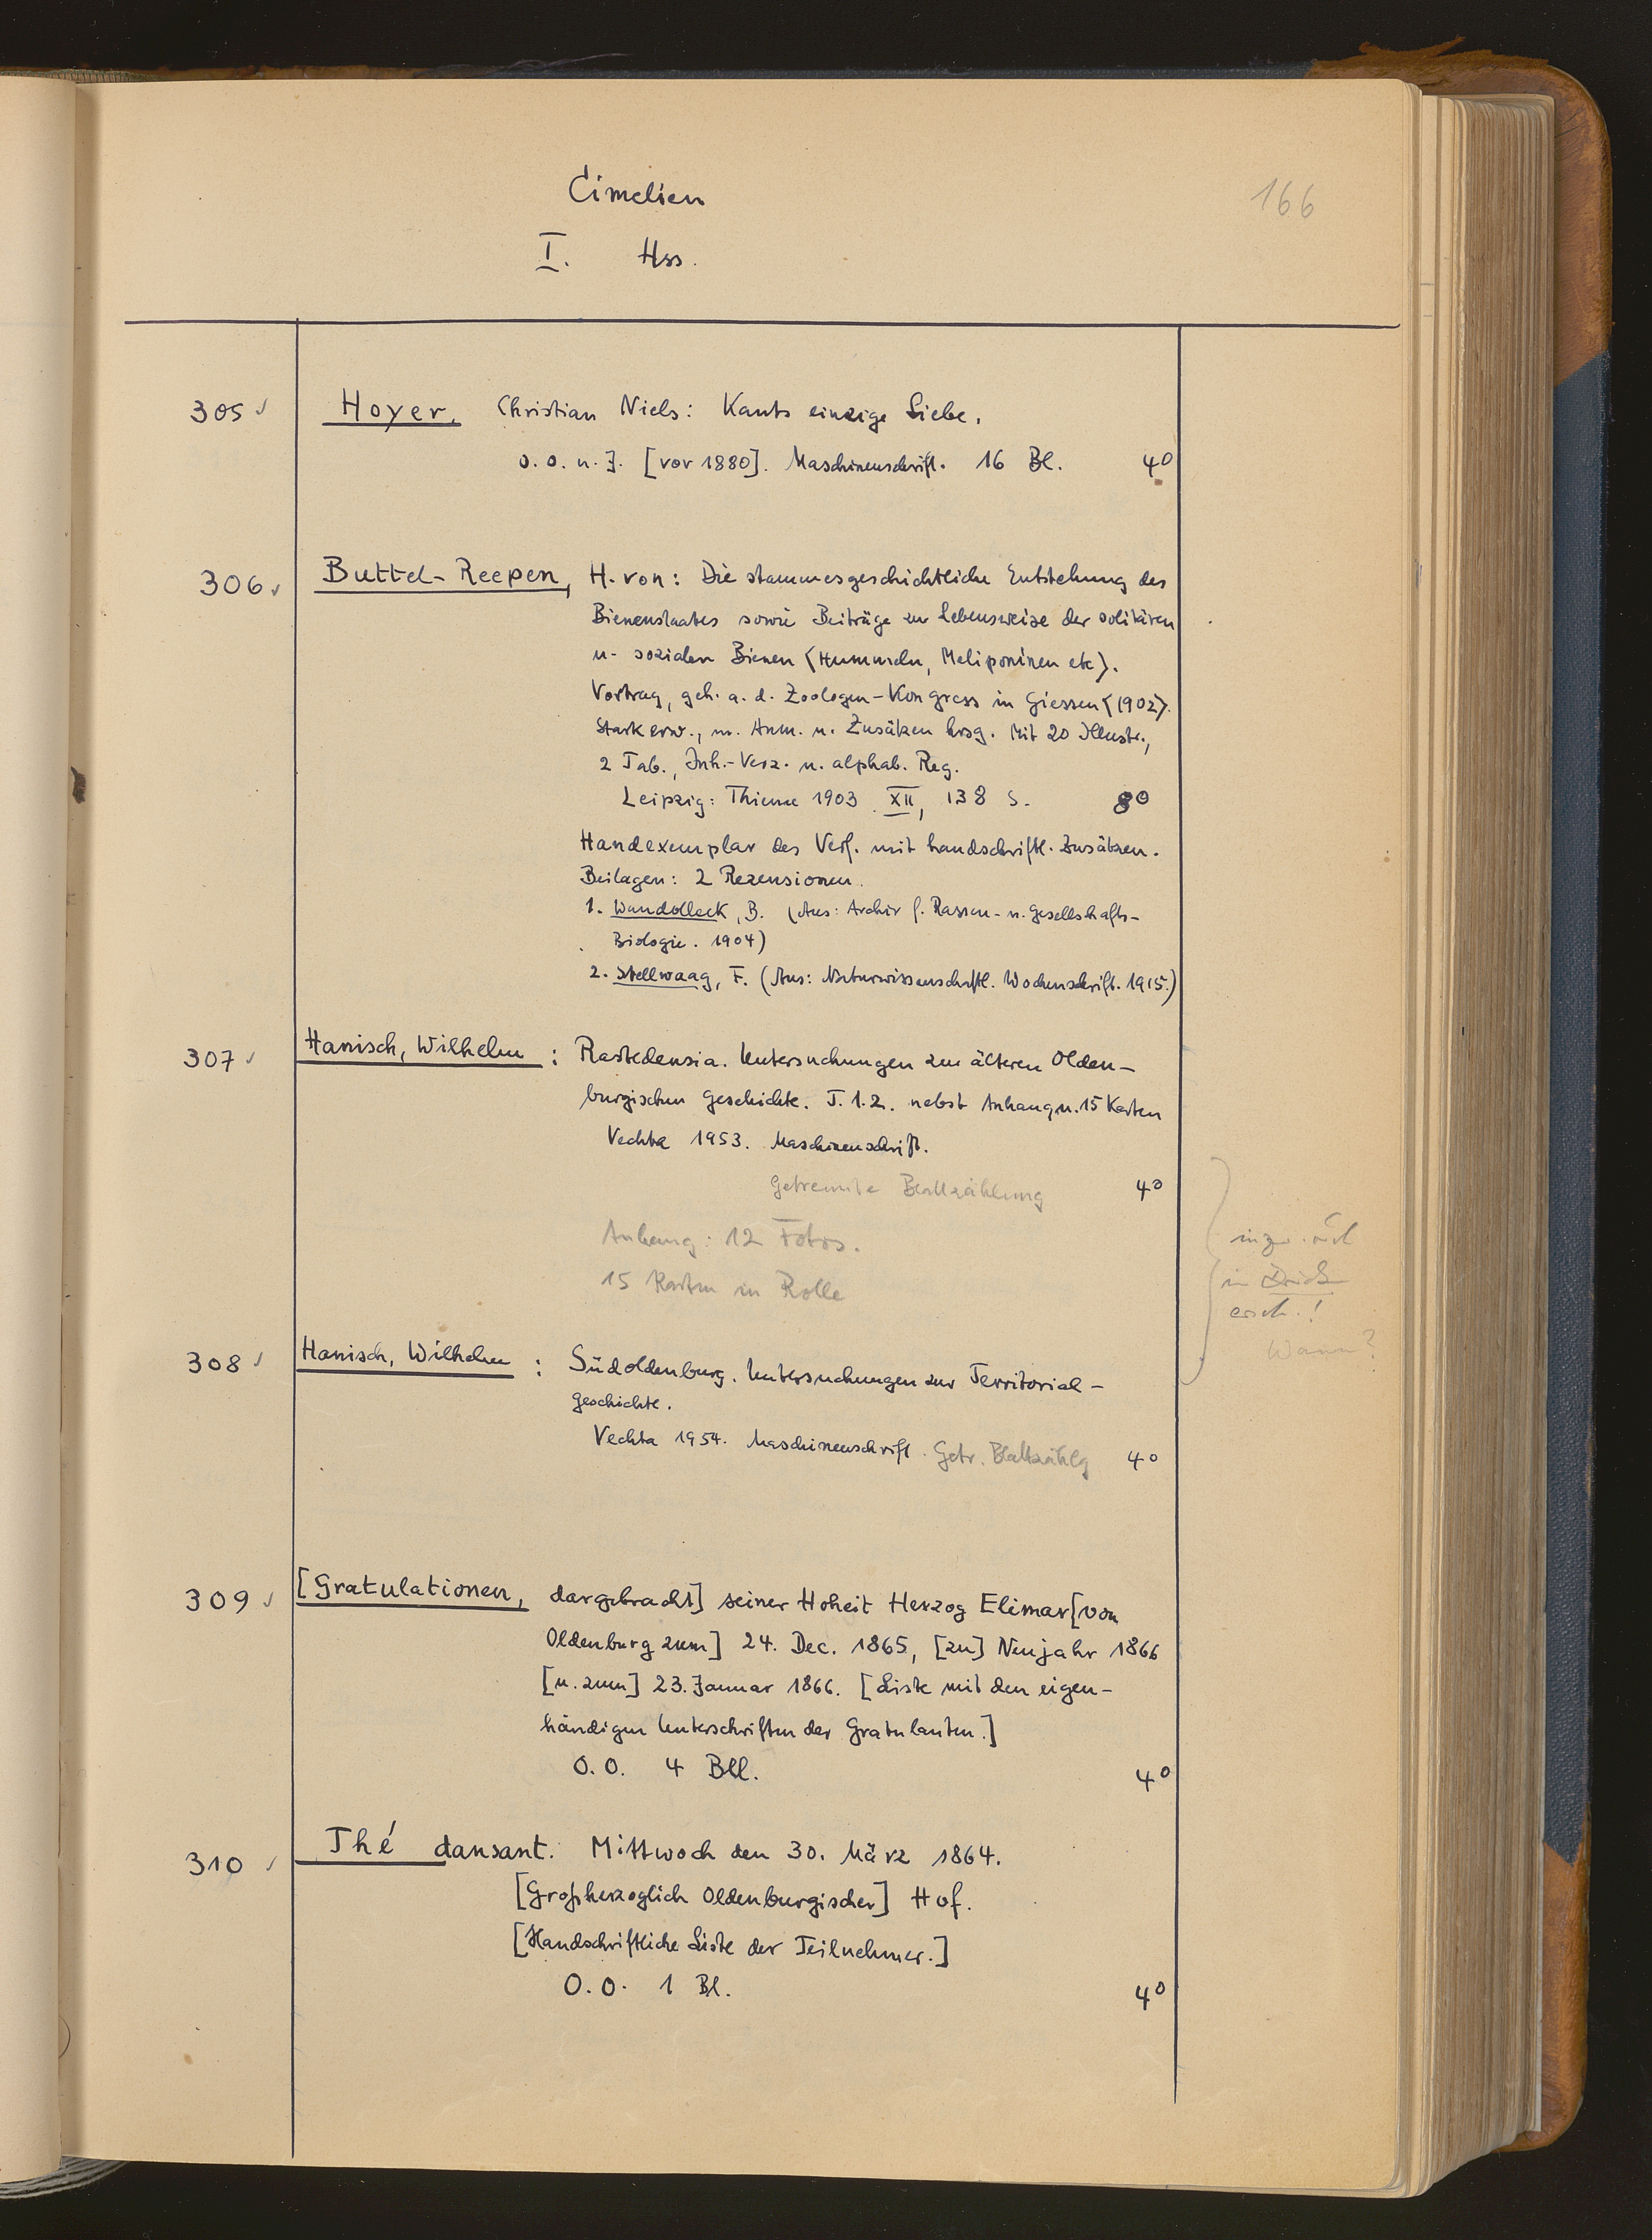 Cimelien
166
I. Hss.
305 ✓ Hoyer, Christian Niels: Kants einzige Liebe.
o. O. u. J. [vor 1880]. Maschinenschrift. 16 Bl. 4°
306 ✓ Buttel-Reepen, H. von: Die stammesgeschichtliche Entstehung des
Bienenstaates sowie Beiträge zur Lebensweise der solitären
u. sozialen Bienen <Hummeln, Meliponinen etc>.
Vortrag, geh. a. d. Zoologen-Kongress in Giessen <1902>.
Stark erw., m. Anm. u. Zusätzen hrsg. Mit 20 Illustr.,
2 Tab., Inh.-Verz. u. alphab. Reg.
Leipzig: Thieme 1903. XII, 138 S. 8°
Handexemplar des Verf. mit handschriftl. Zusätzen.
Beilagen: 2 Rezensionen.
1. Wandolleck, B. (Aus: Archiv f. Rassen- u. Gesellshafts-
Biologie. 1904)
2. Stellwaag, F. (Aus: Naturwissenschaftl. Wochenschrift. 1915.)
307 ✓ Hanisch, Wilhelm: Rastedensia. Untersuchungen zur älteren Olden-
burgischen Geschichte. T. 1.2. nebst Anhang u. 15 Karten
Vechta 1953. Maschinenschrift.
Getrennte Blattzählung 4°
Anhang: 12 Fotos.
15 Karten in Rolle
in Druck
ersch.!
Wann?
308 ✓ Hanisch, Wilhelm: Südoldenburg. Untersuchungen zur Territorial-
geschichte.
Vechta 1954. Maschinenschrift. Getr. Blattzählg 4°
309 ✓ [Gratulationen, dargebracht] seiner Hoheit Herzog Elimar [von
Oldenburg zum] 24. Dec. 1865, [zu] Neujahr 1866
[u. zum] 23. Januar 1866. [Liste mit den eigen-
händigen Unterschriften der Gratulanten.]
O.O. 4 Bll. 4°
310 ✓ Thé dansant. Mittwoch den 30. März 1864.
[Großherzoglich Oldenburgischer] Hof.
[Handschriftliche Liste der Teilnehmer.]
O.O. 1 Bl. 4°